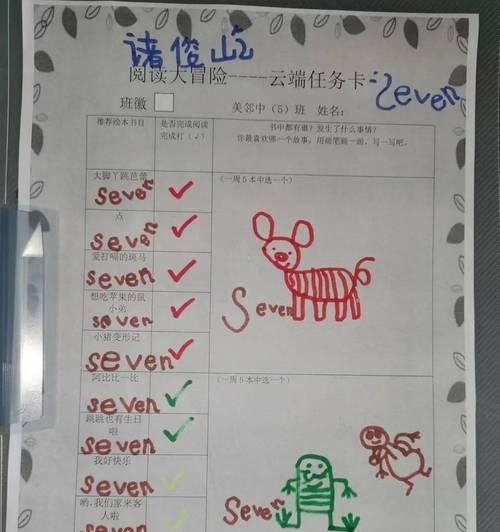 诸俊屹
阅读大冒险----云端任务卡
Seven
班徽 美邻中（5）班 姓名：
推荐绘本书目
是否完成阅读
完成打（√）
书中都有谁？发生了什么事情？
你最喜欢哪一个故事，用画笔画一画，写一写吧。
大脚丫跳芭蕾
seven
（一周5本中选一个）
点
seven
爱打嗝的斑马
seven
想吃苹果的鼠
小弟
seven
Seven
小猪变形记
seven
阿比比一比
seven
（一周5本中选一个）
跳跳也有生日
啦
seven
我好快乐
seven
哟，我们家来客
人啦
seven
Seven